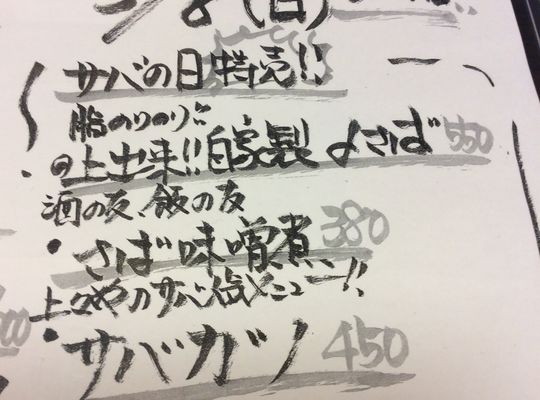 3/8(日)
サバの日特売!!
脂のりのり!!
•上出来!!自家製 〆さば 550
酒の友、飯の友
•さば味噌煮 380
上々やのサバ人気メニュー!!
•サバカツ 450